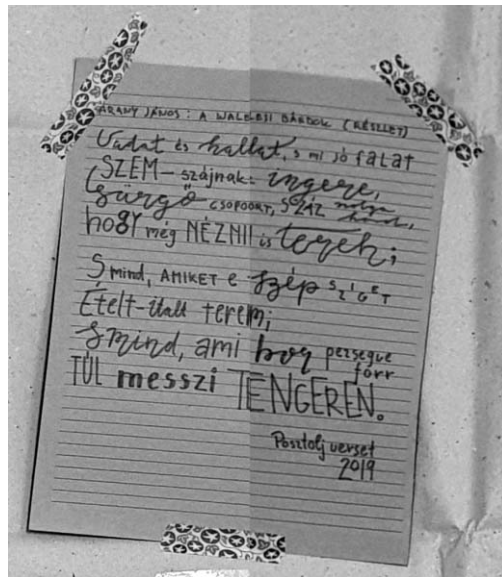 ARANY JÁNOS: A WALELESI BÁRDOK (RÉSZLET)
Vadat és hallat, s mi jó falat
SZEM – szájnak: ingere,
Sürgő CSOPOORT, SZÁZ szolga hord,
hogy még NÉZNII is tereh;
S mind, AMIKET e szép SZIGET
Ételt-italt terem;
S mind, ami bor pezsegve forr
TÚL messzi TENGEREN.
Posztolj verset
2019